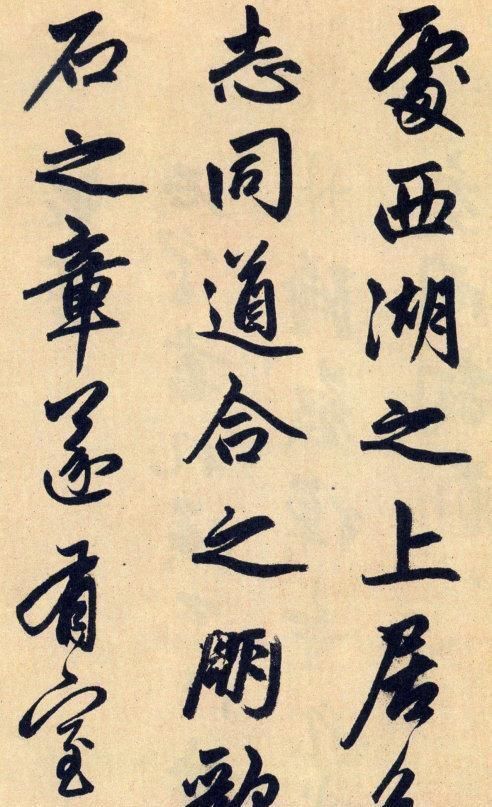 處西湖之上居
志同道合之朋
石之章遂有室